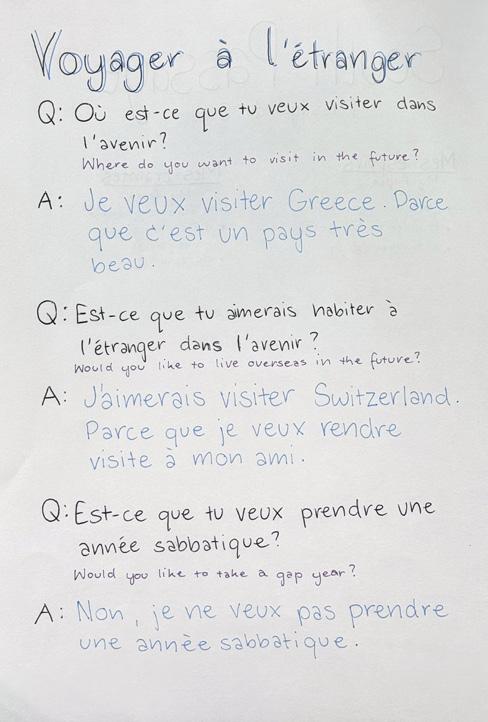 Voyager à l'étranger
Q: Où est-ce que tu veux visiter dans
l'avenir?
Where do you want to visit in the future?
A: Je veux visiter Greece. Parce
que c'est un pays très
beau.
Q: Est-ce que tu aimerais habiter à
l'étranger dans l'avenir?
Would you like to live overseas in the future?
A: J'aimerais visiter Switzerland.
Parce que je veux rendre
visite à mon ami.
Q: Est-ce que tu veux prendre une
année sabbatique?
Would you like to take a gap year?
A: Non, je ne veux pas prendre
une annèe sabbatique.